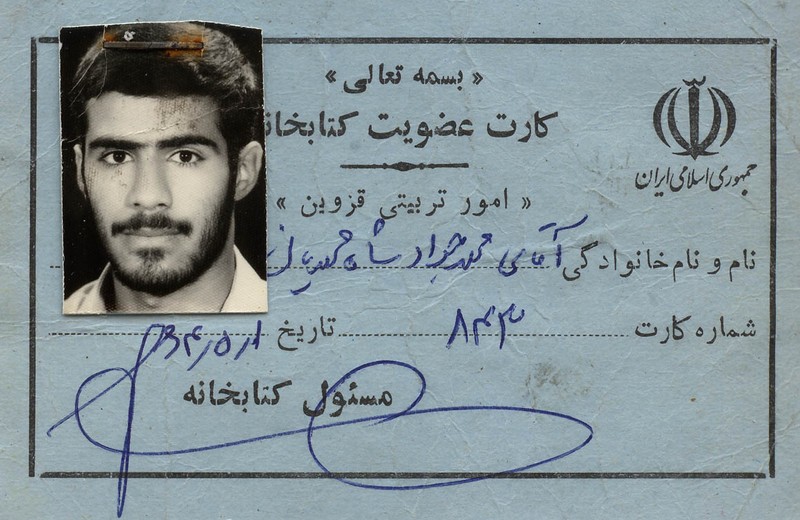 « بسمه تعالی »
کارت عضویت کتابخانه
جمهوری اسلامی ایران
« امور تربیتی قزوین »
نام و نام خانوادگی آقای محمد جواد شاه
شماره کارت ۸۴۳ تاریخ
مسئول کتابخانه